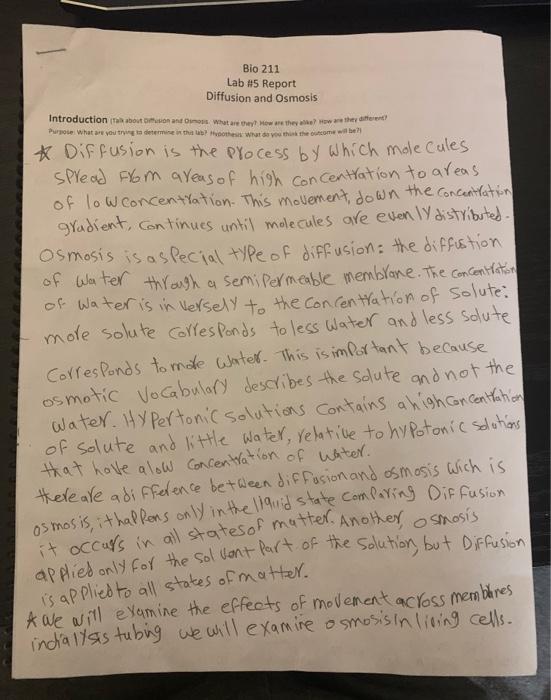 Bio 211
Lab #5 Report
Diffusion and Osmosis
Introduction (Talk about Diffusion and Osmosis. What are they? How are they alike? How are they different?
Purpose: What are you trying to determine in this lab? Hypothesis: What do you think the outcome will be?)
* Diffusion is the process by which molecules
spread from areas of high concentration to areas
of low concentration. This movement, down the concentration
gradient, continues until molecules are evenly distributed.
Osmosis is a special type of diffusion: the diffustion
of water through a semipermeable membrane. The concentration
of water is inversely to the concentration of solute:
more solute corresponds to less water and less solute
corresponds to more water. This is important because
osmotic vocabulary describes the solute and not the
water. Hypertonic solutions contains a high concentration
of solute and little water, relative to hypotonic solutions
that have a low concentration of water.
there are a difference between diffusion and osmosis wich is
osmosis, it happens only in the liquid state comparing Diffusion
it occurs in all states of matter. Another, osmosis
applied only for the solvant part of the solution, but Diffusion
is applied to all states of matter.
* we will examine the effects of movement across membranes
in dialysis tubing we will examine osmosis in living cells.